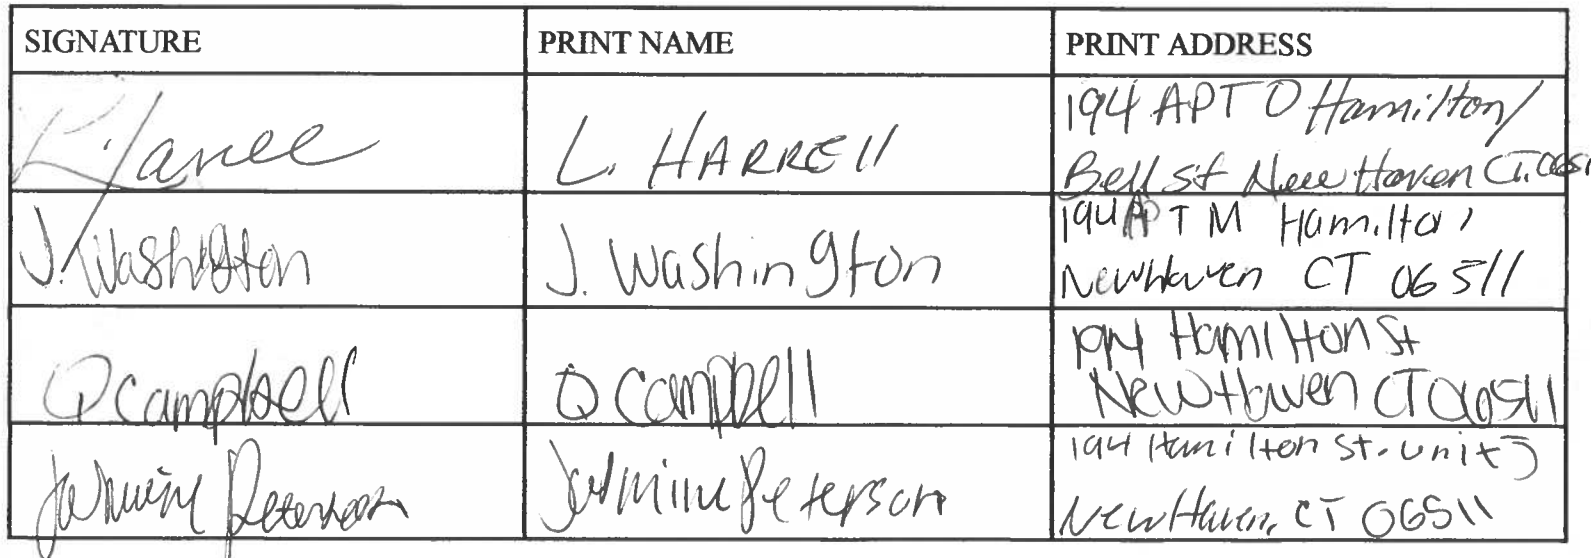 SIGNATURE PRINT NAME PRINT ADDRESS
L. HARRELL 194 APT O Hamilton/
Bell st New Haven CT. 0651
J. Washington J. Washington 194 APT M Hamilton
New haven CT 06511
Q Campbell Q Campbell 194 Hamilton St
New Haven CT 06511
Jasmine Peterson Jasmine Peterson 194 Hamilton St. unit J
New Haven, CT 06511